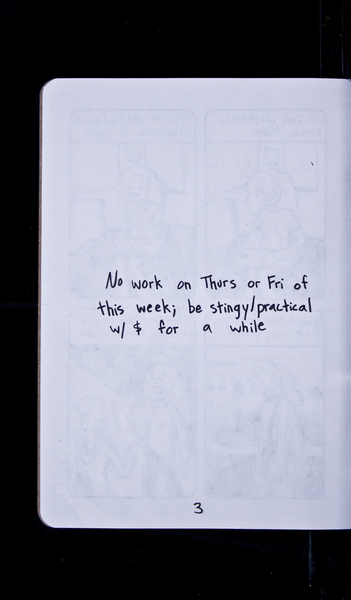 No work on Thurs or Fri of
this week; be stingy/practical
w/ $ for a while
3